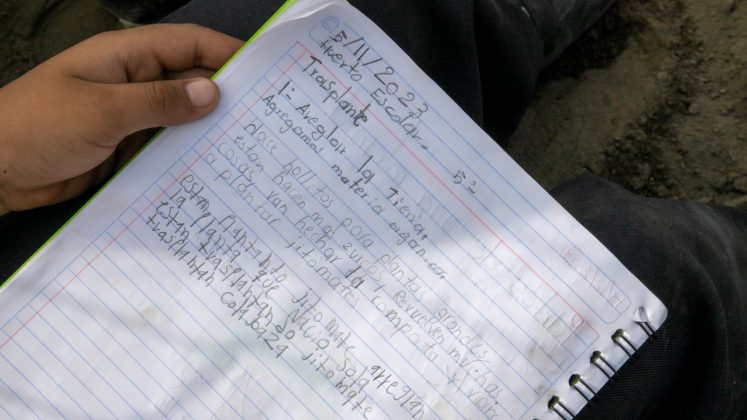 5/11/2023
Huerto Escolar.
Trasplante
1- Aveglair la Tierra. 5-
Agregamos materia organica.
Hace hollitos para plantas grandes
estan hacen mas zurcos Revuelven muchas
cosas van hechar la composta y van
a plantar jitomate
estan plantanto jitomate arreglan
la planta que Nacio sola
estan trasplantando jitomate
trasplantan calabaza